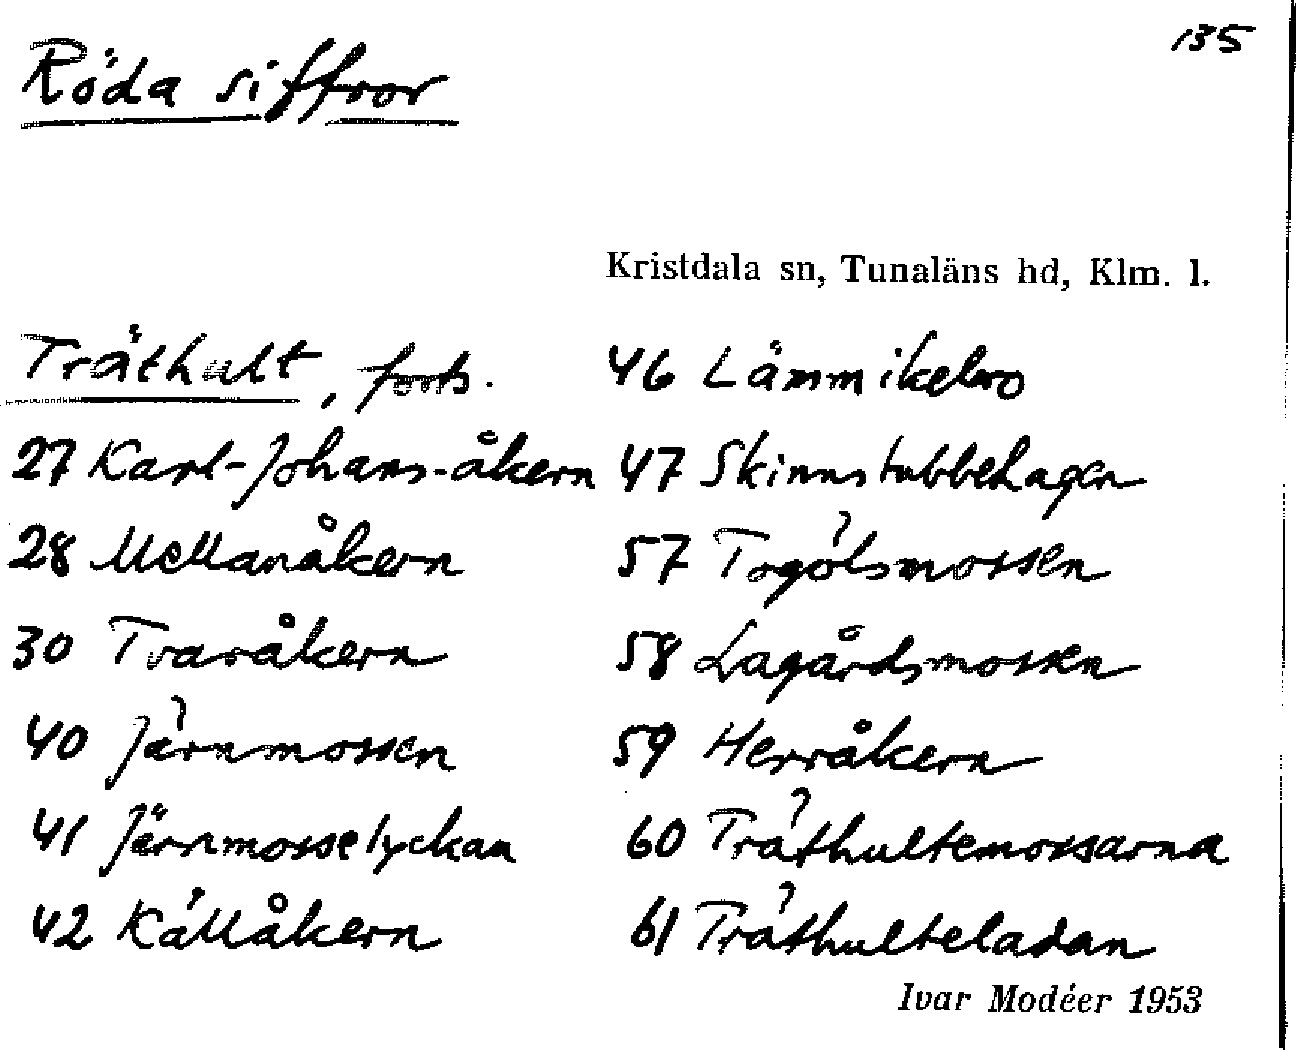 135
Röda siffror
Kristdala sn, Tunaläns hd, Klm. l.
Träthult, forts.
27 Karl-Johans-åkern
28 Mellanåkern
30 Tvaråkern
40 Järnmossen
41 Järnmosselyckan
42 Källåkern
46 Lämmikebro
47 Skinnstubbehagen
57 Togölsmossen
58 Lagårdsmossen
59 Herråkern
60 Träthultemossarna
61 Träthulteladan
Ivar Modéer 1953